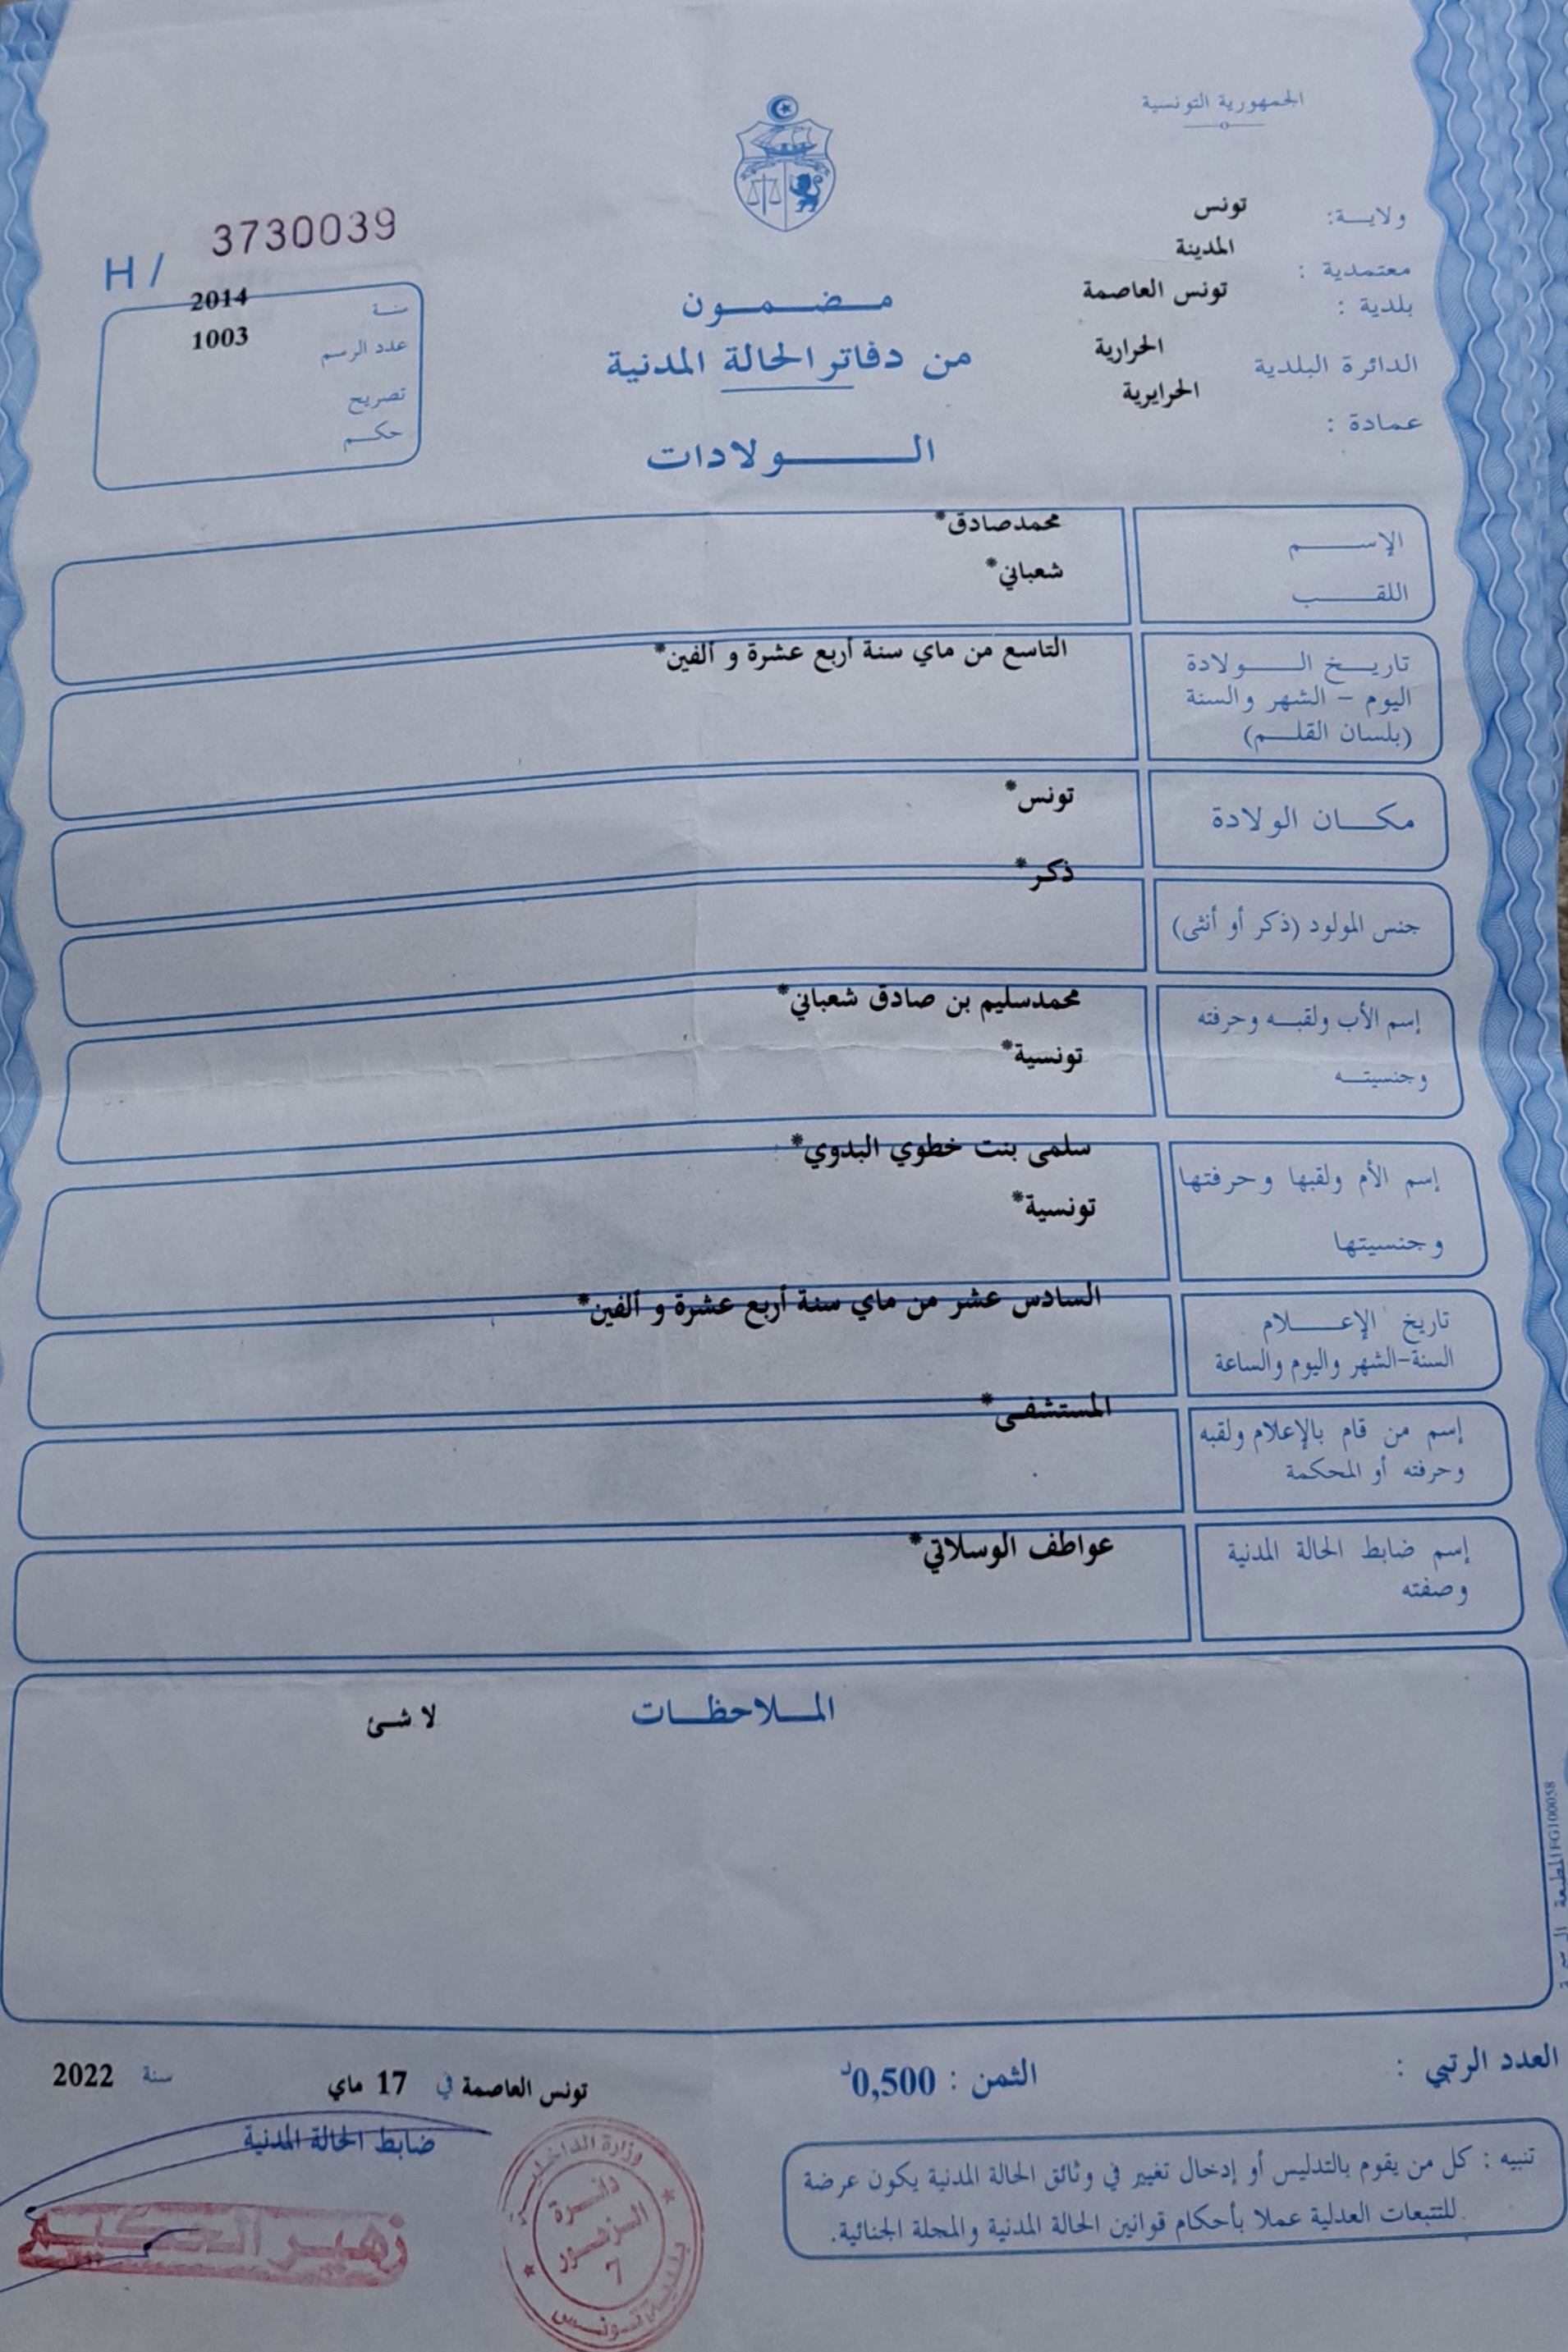 الجمهورية التونسية
ولايــة: تونس
معتمدية : المدينة
بلدية : تونس العاصمة
الدائرة البلدية الحرارية
عمادة : الحرايرية
H / 3730039
سنة 2014
عدد الرسم 1003
تصريح
حكم
مضمون
من دفاتر الحالة المدنية
الولادات
الإسم محمدصادق*
اللقب شعباني*
تاريخ الولادة التاسع من ماي سنة أربع عشرة و ألفين*
اليوم – الشهر والسنة
(بلسان القلم)
مكان الولادة تونس*
جنس المولود (ذكر أو أنثى) ذكر*
إسم الأب ولقبه وحرفته محمدسليم بن صادق شعباني*
وجنسيته تونسية*
إسم الأم ولقبها وحرفتها سلمى بنت خطوي البدوي*
وجنسيتها تونسية*
تاريخ الإعلام السادس عشر من ماي سنة أربع عشرة و ألفين*
السنة-الشهر واليوم والساعة
إسم من قام بالإعلام ولقبه المستشفى*
وحرفته أو المحكمة
إسم ضابط الحالة المدنية عواطف الوسلاتي*
وصفته
الملاحظات لا شئ
المطبعة الرسمية FG100058
العدد الرتبي :
الثمن : 0,500د
تونس العاصمة في 17 ماي سنة 2022
ضابط الحالة المدنية
زهير الحكيم
وزارة الداخلية
دائرة
الزهور
7
بلدية تونس
تنبيه : كل من يقوم بالتدليس أو إدخال تغيير في وثائق الحالة المدنية يكون عرضة
للتتبعات العدلية عملا بأحكام قوانين الحالة المدنية والمجلة الجنائية.